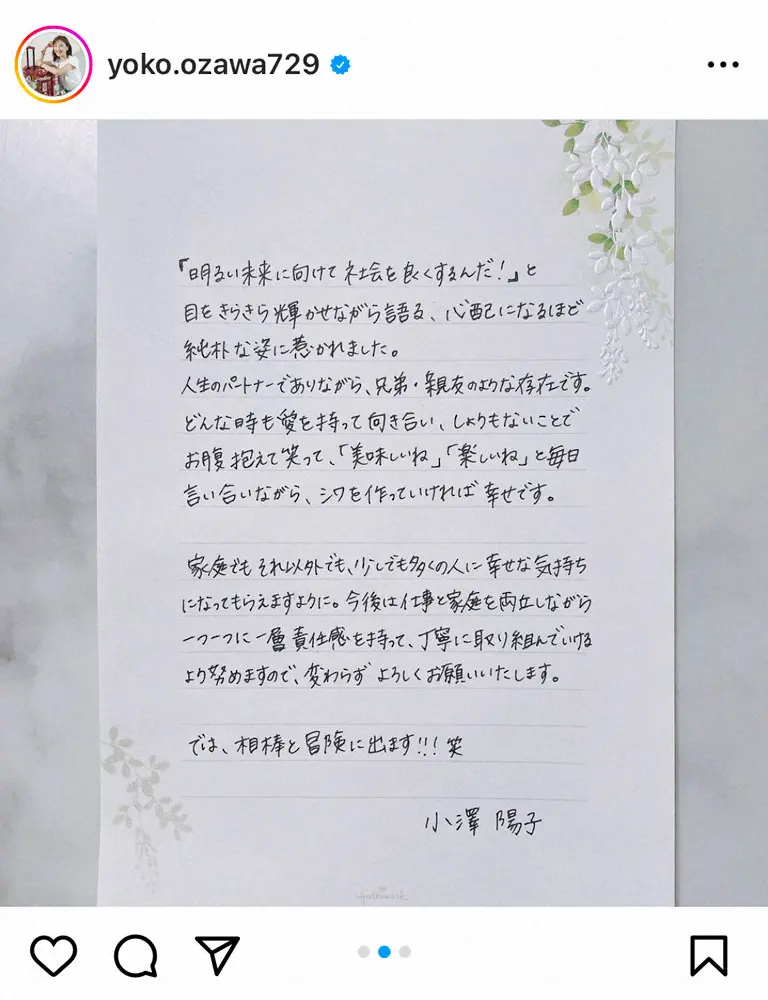 yoko.ozawa729
「明るい未来に向けて社会を良くするんだ!」と
目をきらきら輝かせながら語る、心配になるほど
純朴な姿に惹かれました。
人生のパートナーでありながら、兄弟・親友のような存在です。
どんな時も愛を持って向き合い、しょうもないことで
お腹抱えて笑って、「美味しいね」「楽しいね」と毎日
言い合いながら、シワを作っていければ幸せです。
家庭でもそれ以外でも、少しでも多くの人に幸せな気持ち
になってもらえますように。今後は仕事と家庭を両立しながら
一つ一つに一層責任感を持って、丁寧に取り組んでいける
より努めますので、変わらずよろしくお願いいたします。
では、相棒と冒険に出ます!!!笑
小澤 陽子
Hallmark